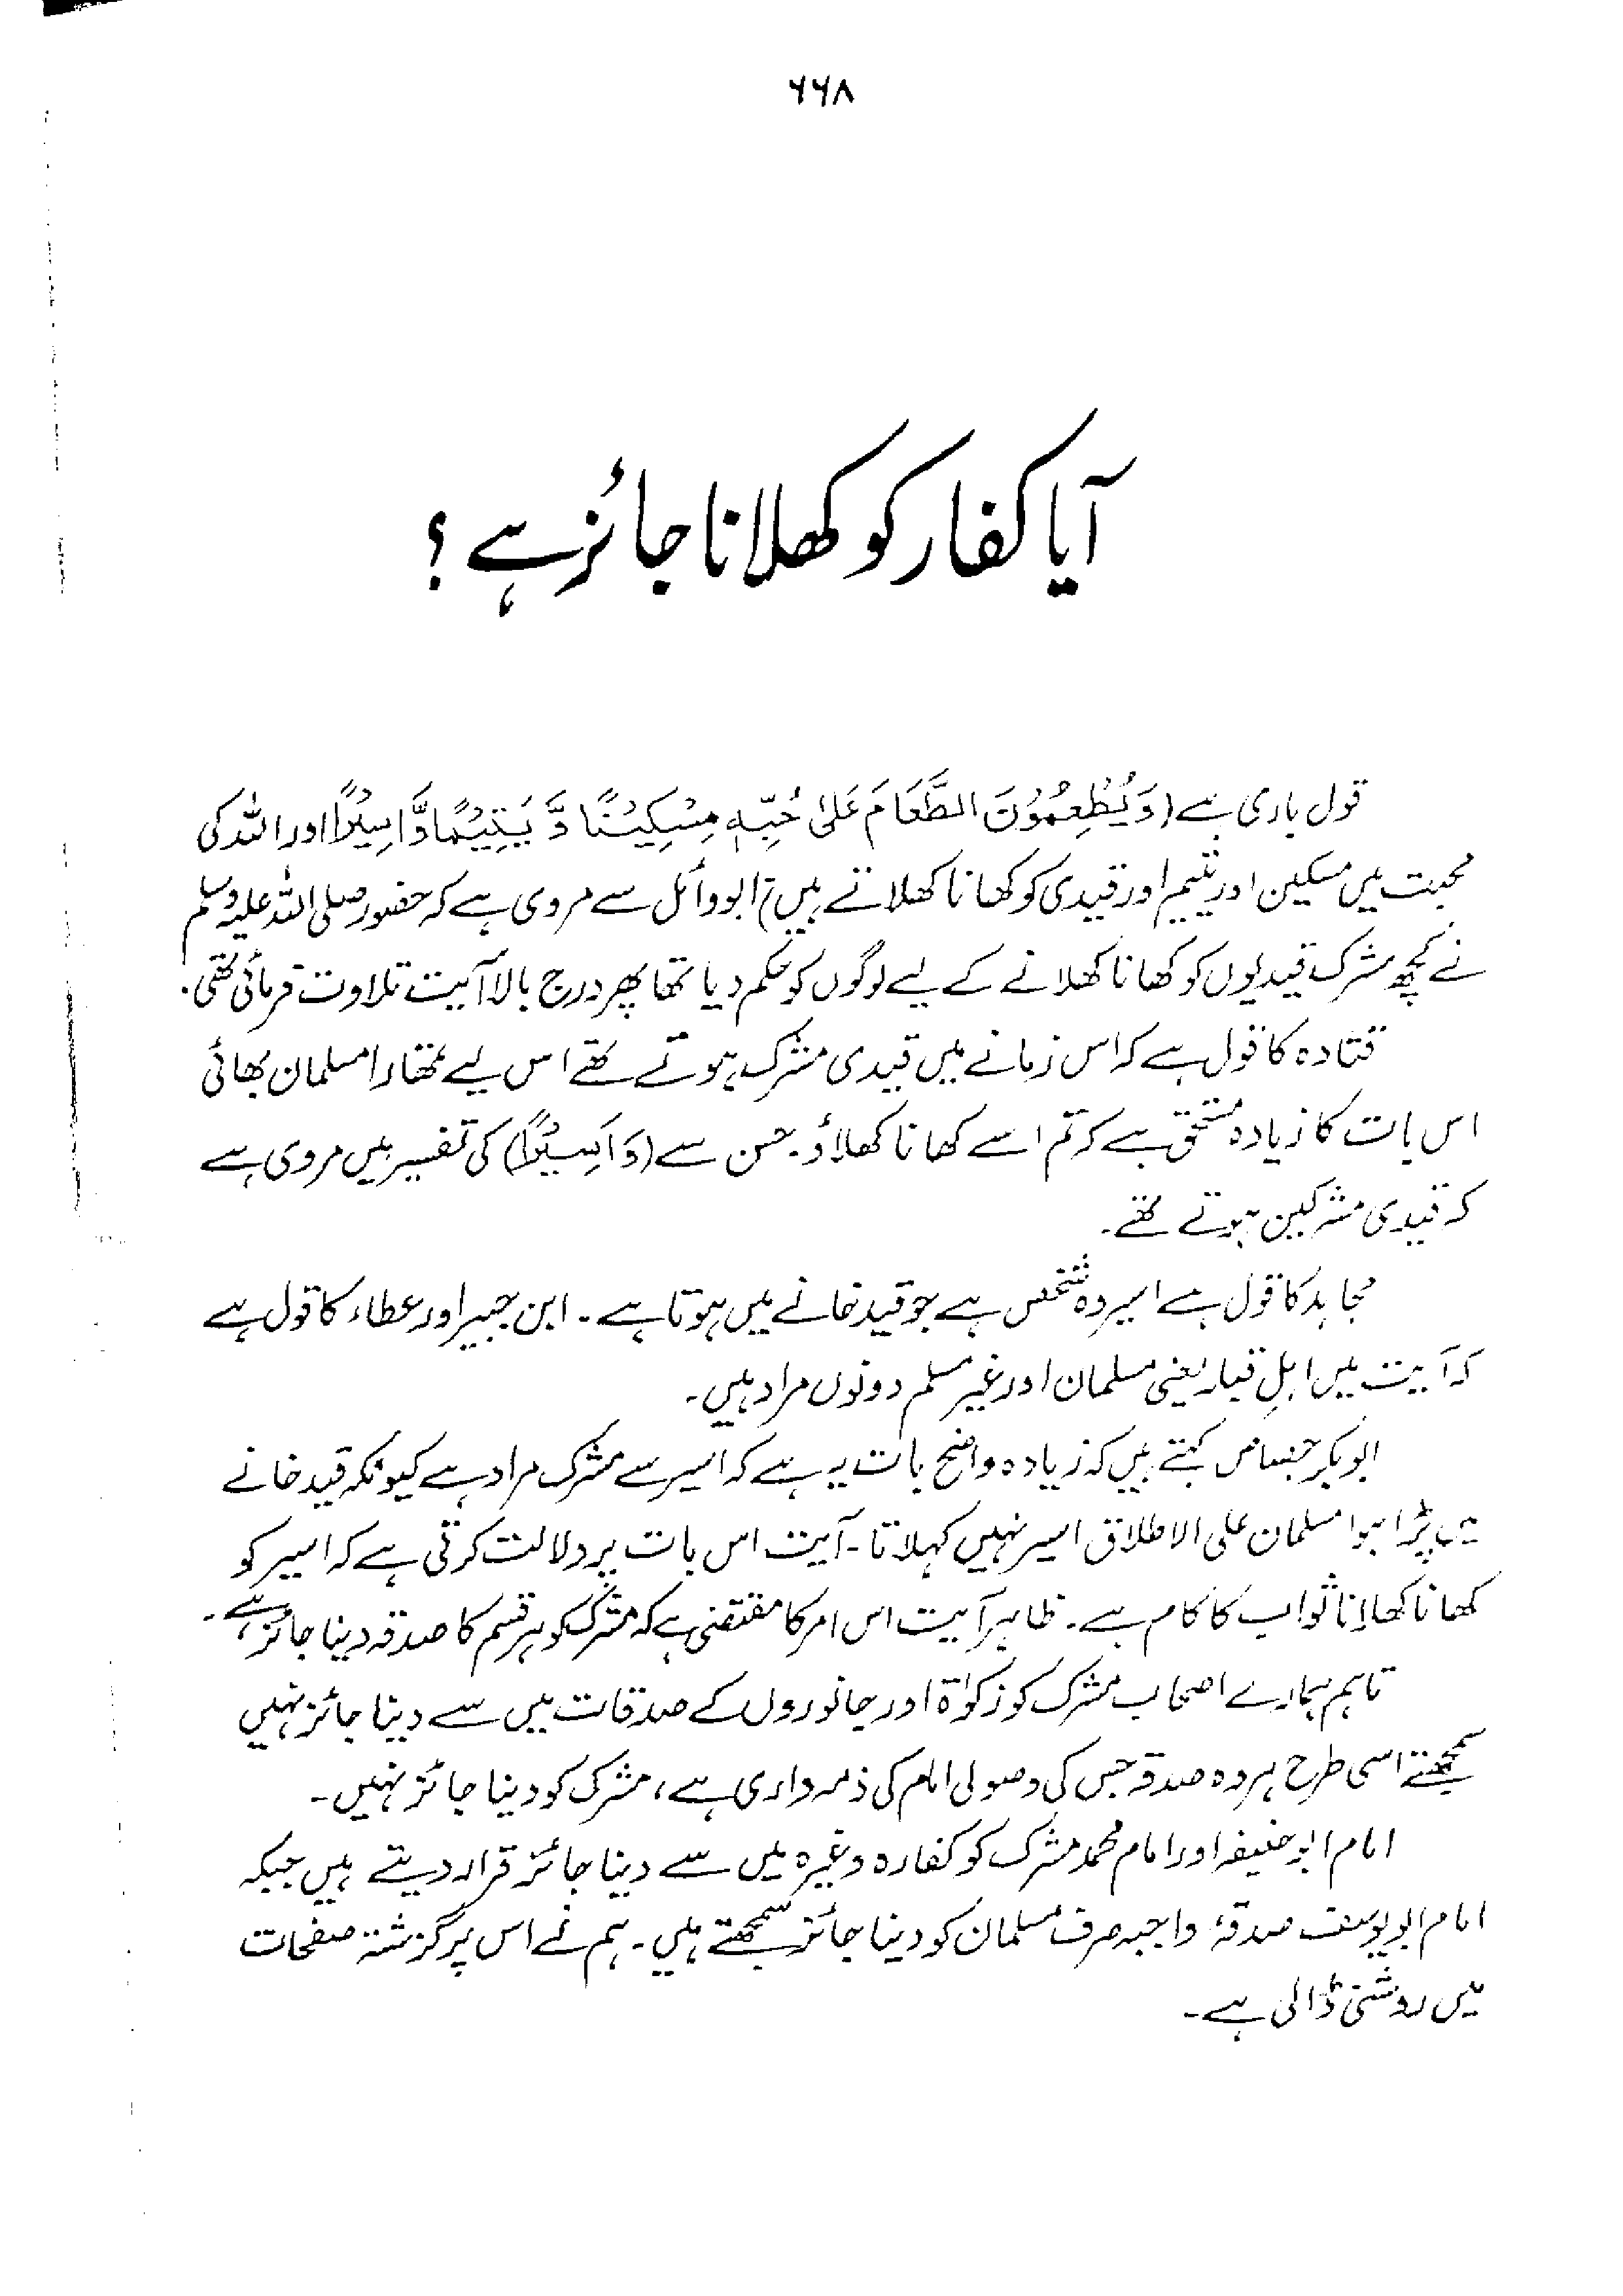 ۶۶۸
آیا کفار کو کھلانا جائز ہے ؟
قول باری ہے (وَيُطْعِمُوْنَ الطَّعَامَ عَلٰى حُبِّهٖ مِسْكِيْنًا وَّ يَتِيْمًا وَّاَسِيْرًا اور اللہ کی
محبت میں مسکین اور یتیم اور قیدی کو کھانا کھلاتے ہیں) ابووائل سے مروی ہے کہ حضور صلی اللہ علیہ وسلم
نے کچھ مشرک قیدیوں کو کھانا کھلانے کے لیے لوگوں کو حکم دیا تھا پھر درج بالا آیت تلاوت فرمائی تھی۔
قتادہ کا قول ہے کہ اس زمانے میں قیدی مشرک ہوتے تھے اس لیے تمھارا مسلمان بھائی
اس بات کا زیادہ مستحق ہے کہ تم اسے کھانا کھلاؤ۔ حسن سے (وَاَسِيْرًا) کی تفسیر میں مروی ہے
کہ قیدی مشرکین ہوتے تھے۔
مجاہد کا قول ہے اسیر وہ شخص ہے جو قید خانے میں ہوتا ہے۔ ابن جبیر اور عطاء کا قول ہے
کہ آیت میں اہلِ قبلہ یعنی مسلمان اور غیر مسلم دونوں مراد ہیں۔
ابوبکر جصاص کہتے ہیں کہ زیادہ واضح بات یہ ہے کہ اسیر سے مشرک مراد ہے کیونکہ قید خانے
میں پڑا ہوا مسلمان علی الاطلاق اسیر نہیں کہلاتا۔ آیت اس بات پر دلالت کرتی ہے کہ اسیر کو
کھانا کھلانا ثواب کا کام ہے۔ ظاہر آیت اس امر کا مقتضی ہے کہ مشرک کو ہر قسم کا صدقہ دینا جائز ہے۔
تاہم ہمارے اصحاب مشرک کو زکوٰۃ اور جانوروں کے صدقات میں سے دینا جائز نہیں
سمجھتے اسی طرح ہر وہ صدقہ جس کی وصولی امام کی ذمہ داری ہے، مشرک کو دینا جائز نہیں۔
امام ابوحنیفہ اور امام محمد مشرک کو کفارہ وغیرہ میں سے دینا جائز قرار دیتے ہیں جبکہ
امام ابویوسف صدقۂ واجبہ صرف مسلمان کو دینا جائز سمجھتے ہیں۔ ہم نے اس پر گزشتہ صفحات
میں روشنی ڈالی ہے۔